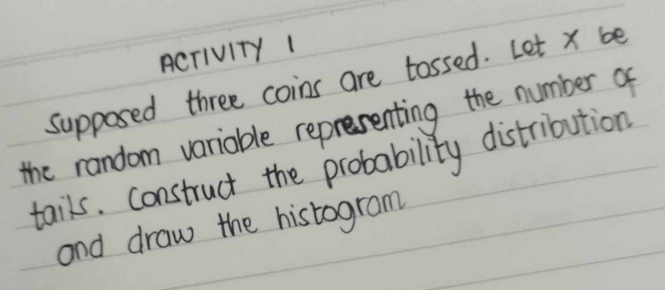 ACTIVITY 1
Supposed three coins are tossed. Let X be
the random variable representing the number of
tails. Construct the probability distribution
and draw the histogram